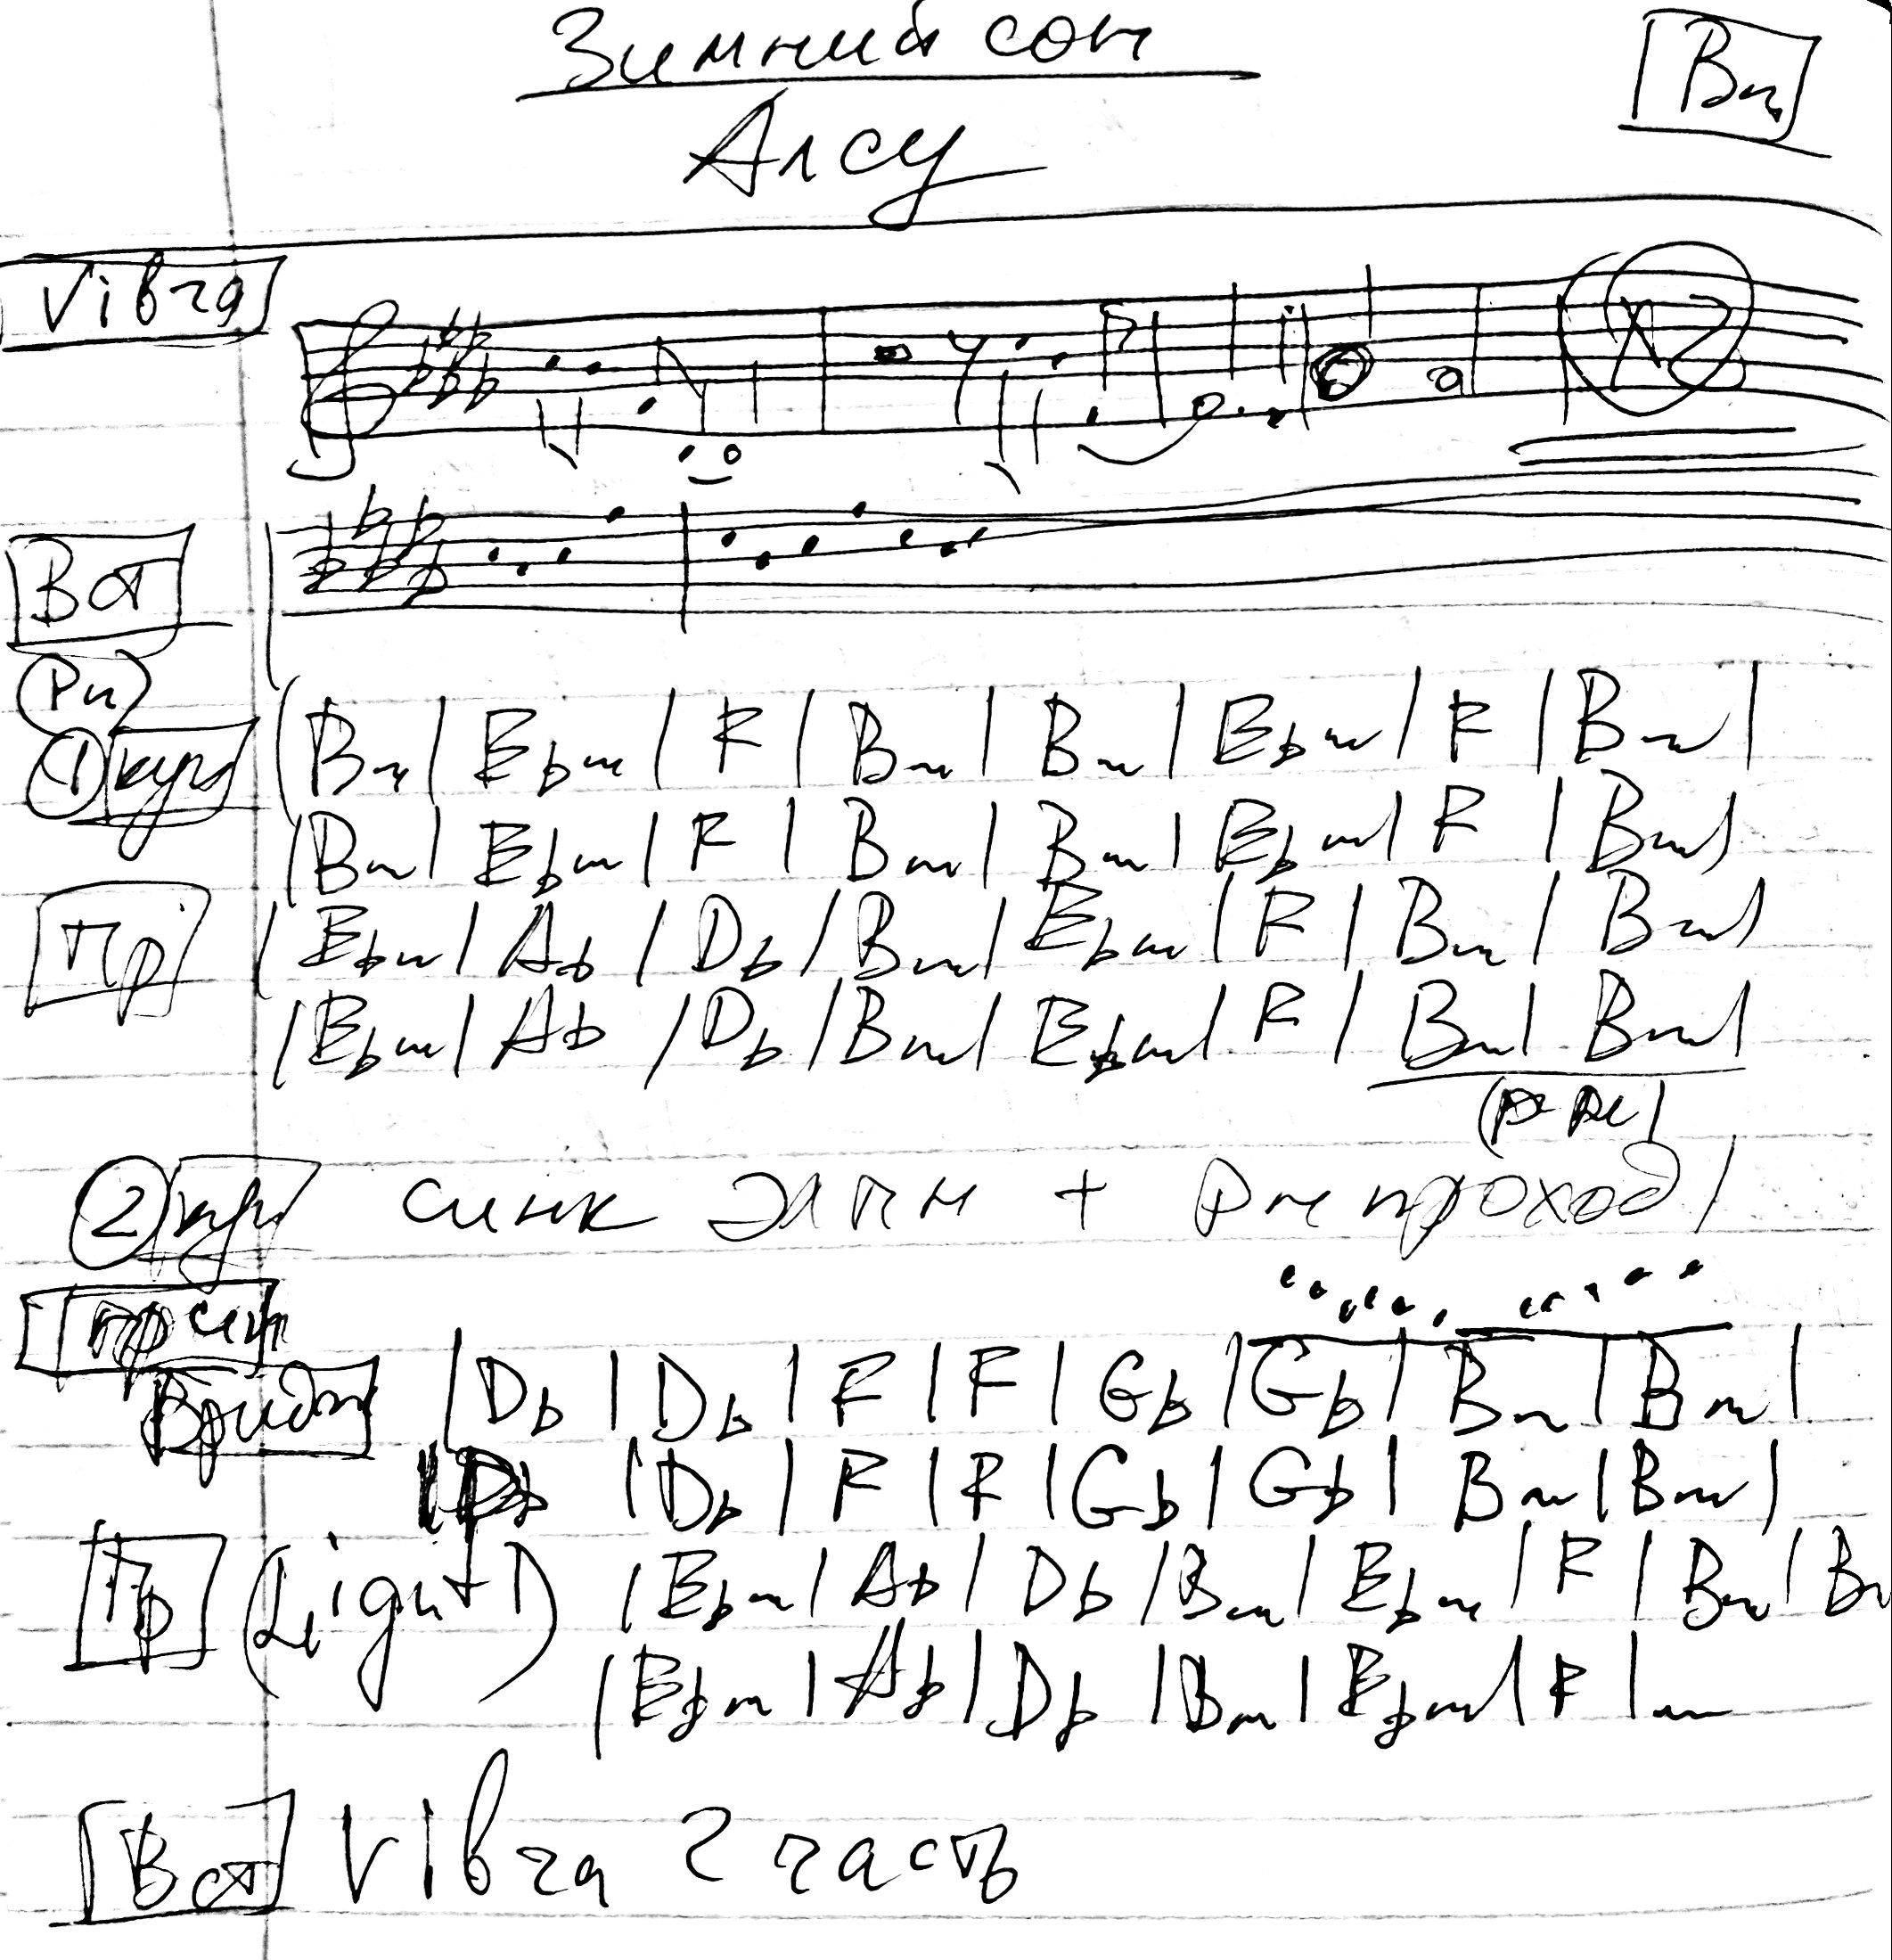 Зимний сон
Bm
Алсу
Vibra
x2
Вст
① куп | Bm | Ebm | F | Bm | Bm | Ebm | F | Bm |
| Bm | Ebm | F | Bm | Bm | Ebm | F | Bm |
Пр | Ebm | Ab | Db | Bm | Ebm | F | Bm | Bm |
| Ebm | Ab | Db | Bm | Ebm | F | Bm | Bm |
② куп синк + проход
Бридж | Db | Db | F | F | Gb | Gb | Bm | Bm |
| Db | Db | F | F | Gb | Gb | Bm | Bm |
Пр (Light) | Ebm | Ab | Db | Bm | Ebm | F | Bm | Bm
| Ebm | Ab | Db | Bm | Ebm | F |
Вст Vibra 2 часть